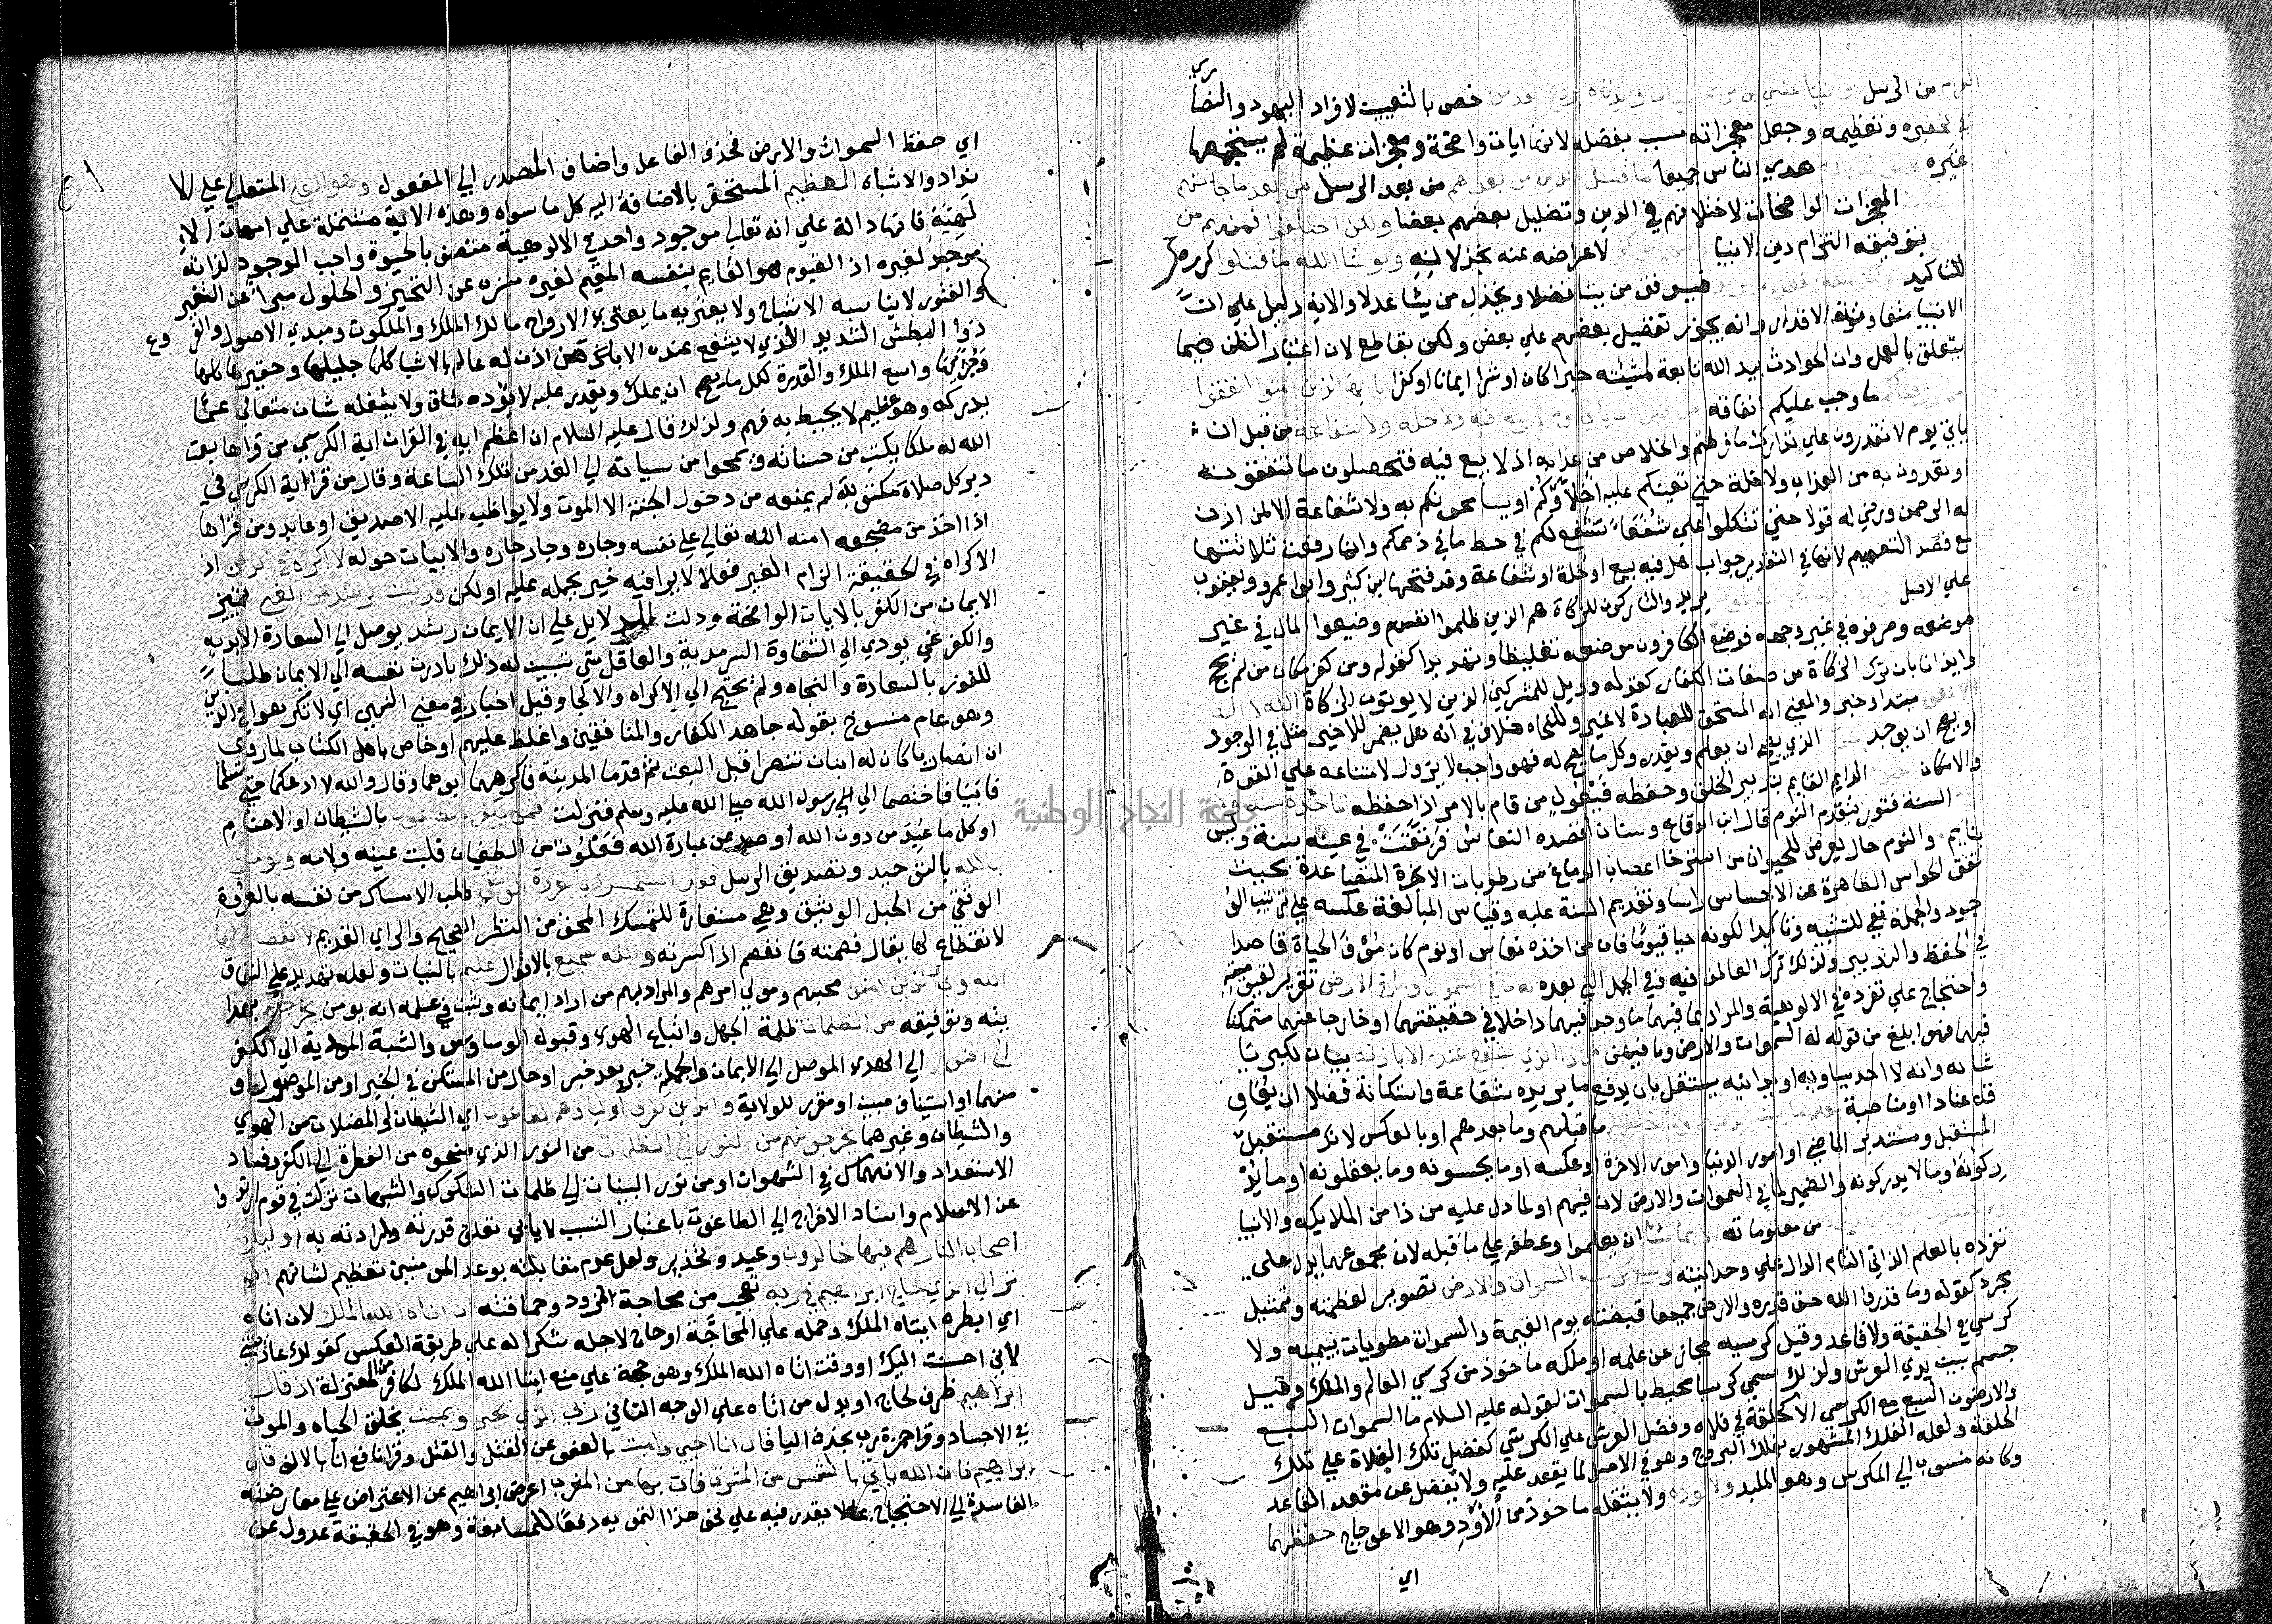 من الرسل وآتينا عيسى بن مريم البينات وايدناه بروح القدس خص بالتعيين لافراد اليهود والنصا
ري
في تحقيره وتعظيمه وجعل معجزاته سبب بفضله لانها ايات واضحة ومعجزات عظيمة لم يستجمعها
غيره ولو شا الله هدي الناس جميعا ما اقتتل الذين من بعدهم من بعد الرسل من بعد ما جاتهم
المعجزات الواضحات لاختلافهم في الدين وتضليل بعضهم بعضا ولكن اختلفوا فمنهم من
بتوفيقه التزام دين الانبيا ومنهم من كفر لاعراضه عنه بخذلانه ولو شا الله ما اقتتلوا كرره
للتاكيد ولكن الله يفعل ما يريد فيوفق من يشا فضلا ويخذل من يشا عدلا والاية دليل علي ان
الانبيا متفاوتة الاقدار وانه يجوز تفضيل بعضهم علي بعض ولكن بقاطع لان اعتبار الظن فيما
يتعلق بالعمل وان الحوادث بيد الله تابعة لمشيئته خيرا كان او شرا ايمانا او كفرا يا ايها الذين امنوا انفقوا
مما رزقناكم ما وجب عليكم انفاقه من قبل ان ياتي يوم لا بيع فيه ولا خلة ولا شفاعة من قبل ان
ياتي يوم لا تقدرون علي تدارك ما فرطتم والخلاص من عذابه اذ لا بيع فيه فتحصلون ما تنفقونه
او تفتدون به من العذاب ولا خلة حتي تعينكم عليه اخلاؤكم او يسامحونكم به ولا شفاعة الا لمن اذن
له الرحمن ورضي له قولا حتي تتكلوا علي شفعا تشفع لكم في حط ما في ذممكم وانما رفعت ثلاثتها
مع قصد التعميم لانها في التقدير جواب هل فيه بيع او خلة او شفاعة وقد فتحها ابن كثير وابو عمرو ويعقوب
علي الاصل والكافرون هم الظالمون يريد والتاركون للزكاة هم الذين ظلموا انفسهم وضيعوا المال في غير
موضعه وصرفوه في غير وجهه فوضع الكافرون موضعه تغليظا وتهديدا كقوله ومن كفر مكان من لم يحج
وايذانا بان ترك الزكاة من صفات الكفار كقوله وويل للمشركين الذين لا يوتون الزكاة الله لا اله
الا هو مبتدا وخبر والمعني انه المستحق للعبادة لا غير وللنحاه خلاف في انه هل يضمر للا خبر مثل في الوجود
او يصح ان يوجد الحي الذي يصح ان يعلم ويقدر وكل ما يصح له فهو واجب لا يزول لامتناعه علي القوة
والامكان القيوم الدايم القايم بتدبير الخلق وحفظه فيعول من قام بالامر اذا حفظه لا تاخذه سنة ولا نوم
السنة فتور يتقدم النوم قال ابن الرقاع وسنان اقصده النعاس فرنقت في عينه سنة وليس
بنايم والنوم حال يعرض للحيوان من استرخا اعصاب الدماغ من رطوبات الابخرة المتصاعدة بحيث
تقف الحواس الظاهرة عن الاحساس راسا وتقديم السنة عليه وقياس المبالغة عكسه علي ترتيب الو
جود والجملة نفي للتشبيه وتاكيدا لكونه حيا قيوما فان من اخذه نعاس او نوم كان مؤف الحياة قاصرا
في الحفظ والتدبير ولذلك ترك العاطف فيه وفي الجمل التي بعده له ما في السموات وما في الارض تقرير لقيوميته
واحتجاج علي تفرده في الالوهية والمراد بما فيهما ما وجد فيهما داخلا في حقيقتهما او خارجا عنهما متمكنا
فيهما فهو ابلغ من قوله له السموات والارض وما فيهن من ذا الذي يشفع عنده الا باذنه بيان لكبريا
شانه وانه لا احد يساويه او يدانيه يستقل بان يدفع ما يريده شفاعة واستكانة فضلا ان يعاو
قه عنادا او مناصبة يعلم ما بين ايديهم وما خلفهم ما قبلهم وما بعدهم او بالعكس لانك مستقبل
المستقبل ومستدبر الماضي او امور الدنيا وامور الاخرة او عكسه او ما يحسونه وما يعقلونه او ما يد
ركونه وما لا يدركونه والضمير لما في السموات والارض لان فيهم او لما دل عليه من ذا من الملايكه والانبيا
ولا يحيطون بشي من علمه من معلوماته الا بما شا ان يعلموا وعطفه علي ما قبله لان مجموعهما يدل علي
تفرده بالعلم الذاتي التام الدال علي وحدانيته وسع كرسيه السموات والارض تصوير لعظمته وتمثيل
مجرد كقوله وما قدروا الله حق قدره والارض جميعا قبضته يوم القيمة والسموات مطويات بيمينه ولا
كرسي في الحقيقة ولا قاعد وقيل كرسيه مجاز عن علمه او ملكه ماخوذ من كرسي العالم والملك وقيل
جسم بين يدي العرش ولذلك سمي كرسيا محيط بالسموات لقوله عليه السلام ما السموات السبع
والارضون السبع مع الكرسي الا كحلقة في فلاه وفضل العرش علي الكرسي كفضل تلك الفلاة علي تلك
الحلقة ولعله الفلك المشهور بفلك البروج وهو في الاصل لما يقعد عليه ولا يفضل عن مقعد القاعد
وكانه منسوب الي الكرس وهو الملبد ولا يوده ولا يثقله ماخوذ من الاود وهو الاعوجاج حفظهما
اي
اي حفظ السموات والارض فحذف الفاعل واضاف المصدر الي المفعول وهو العلي المتعالي علي الا
نداد والاشباه العظيم المستحقر بالاضافة اليه كل ما سواه وهذه الاية مشتملة علي امهات الا
لهية فانها دالة علي انه تعالي موجود واحد في الالوهية متصف بالحيوة واجب الوجود لذاته
موجد لغيره اذ القيوم هو القايم بنفسه المقيم لغيره منزه عن التحيز والحلول مبرا عن التغير
والفتور لا يناسبه الاشباح ولا يعتريه ما يعتري الارواح مالك الملك والملكوت ومبدي الاصول والفر وع
ذوا البطش الشديد الذي لا يشفع عنده الا من اذن له عالم بالاشيا كلها جليلها وحقيرها كليها
وجزئيها واسع الملك والقدرة لكل ما يصح ان يملك ويقدر عليه لا يؤده شاق ولا يشغله شان متعالي عما
يدركه وهو عظيم لا يحيط به فهم ولذلك قال عليه السلام ان اعظم ايه في القران اية الكرسي من قراها بعث
الله له ملكا يكتب من حسناته ويمحوا من سياته الي الغد من تلك الساعة وقال من قرا اية الكرسي في
دبر كل صلاة مكتوبة لم يمنعه من دخول الجنة الا الموت ولا يواظب عليه الا صديق او عابد ومن قراها
اذا اخذ من مضجعه امنه الله تعالي علي نفسه وجاره وجار جاره والابيات حوله لا اكراه في الدين اذ
الاكراه في الحقيقة الزام الغير فعلا لا يرا فيه خير يحمله عليه او لكن قد تبين الرشد من الغي تميز
الايمان من الكفر بالايات الواضحة ودلت الدلايل علي ان الايمان رشد يوصل الي السعادة الابديه
والكفر غي يودي الي الشقاوة السرمدية والعاقل متي تبين له ذلك بادرت نفسه الي الايمان طلبا
للفوز بالسعادة والنجاه ولم يحتج الي الاكراه والالجا وقيل اخبار في معني النهي اي لا تكرهوا في الدين
وهو عام منسوخ بقوله جاهد الكفار والمنافقين واغلظ عليهم او خاص باهل الكتاب لما روي
ان انصاريا كان له ابنان تنصرا قبل البعث ثم قدما المدينة فاكرههما ابوهما وقال والله لا ادعكما حتي تسلما
فابيا فاختصما الي رسول الله صلي الله عليه وسلم فنزلت فمن يكفر بالطاغوت بالشيطان او الاصنام
او كل ما عبد من دون الله او صد عن عبادة الله فعلوت من الطغيان قلبت عينه ولامه ويومن
بالله بالتوحيد وتصديق الرسل فقد استمسك بالعروة الوثقي طلب الامساك من نفسه بالعروة
الوثقي من الحبل الوثيق وهي مستعارة للتمسك المحق من النظر الصحيح والراي القديم لا انفصام لها
لا انقطاع لها يقال فصمته فانفصم اذا كسرته والله سميع بالاقوال عليم بالنيات ولعله تهديد علي النفاق
الله ولي الذين امنوا محبهم ومولي امرهم والمراد بهم من اراد ايمانه وثبت في علمه انه يومن يخرجهم بهدا
يته وتوفيقه من الظلمات ظلمة الجهل واتباع الهوي وقبول الوساوس والشبة المودية الي الكفر
الي النور الي الهدي الموصل الي الايمان والجملة خبر بعد خبر او حال من المستكن في الخبر او من الموصول او
منهما او استيناف مبين او مقرر للولاية والذين كفروا اولياوهم الطاغوت اي الشيطان او المضلات من الهوي
والشيطان وغيرهما يخرجونهم من النور الي الظلمات من النور الذي منحوه من الفطرة الي الكفر وفساد
الاستعداد والانهماك في الشهوات او من نور البينات الي ظلمات الشكوك والشبهات نزلت في قوم ارتدوا
عن الاسلام واسناد الاخراج الي الطاغوت باعتبار السبب لا يابي تعلق قدرته وارادته به اوليك
اصحاب النار هم فيها خالدون وعيد وتحذير ولعل عدم مقابلته بوعد المومنين تعظيم لشانهم الم
تر الي الذي حاج ابراهيم في ربه تعجب من محاجة النمرود وحماقته ان اتاه الله الملك لان اتاه
اي ابطره ايتاه الملك وحمله علي المحاجة او حاج لاجله شكرا له علي طريقة العكس كقولك عاديتني
لاني احسنت اليك او وقت اتاه الله الملك وهو حجة علي منع ايتا الله الملك لكافر من المعتزلة اذ قال
ابراهيم ظرف لحاج او بدل من اتاه علي الوجه الثاني ربي الذي يحيي ويميت يخلق الحياه والموت
في الاجساد وقرا حمزة رب بحذف اليا قال انا احيي واميت بالعفو عن القتل والقتل وقرا نافع انا بالالف قال
ابراهيم فان الله ياتي بالشمس من المشرق فات بها من المغرب اعرض ابراهيم عن الاعتراض علي معارضته
الفاسدة الي الاحتجاج بما لا يقدر فيه علي نحو هذا التمويه دفعا للمشاغبة وهو في الحقيقة عدول عن
جامعة النجاح الوطنية